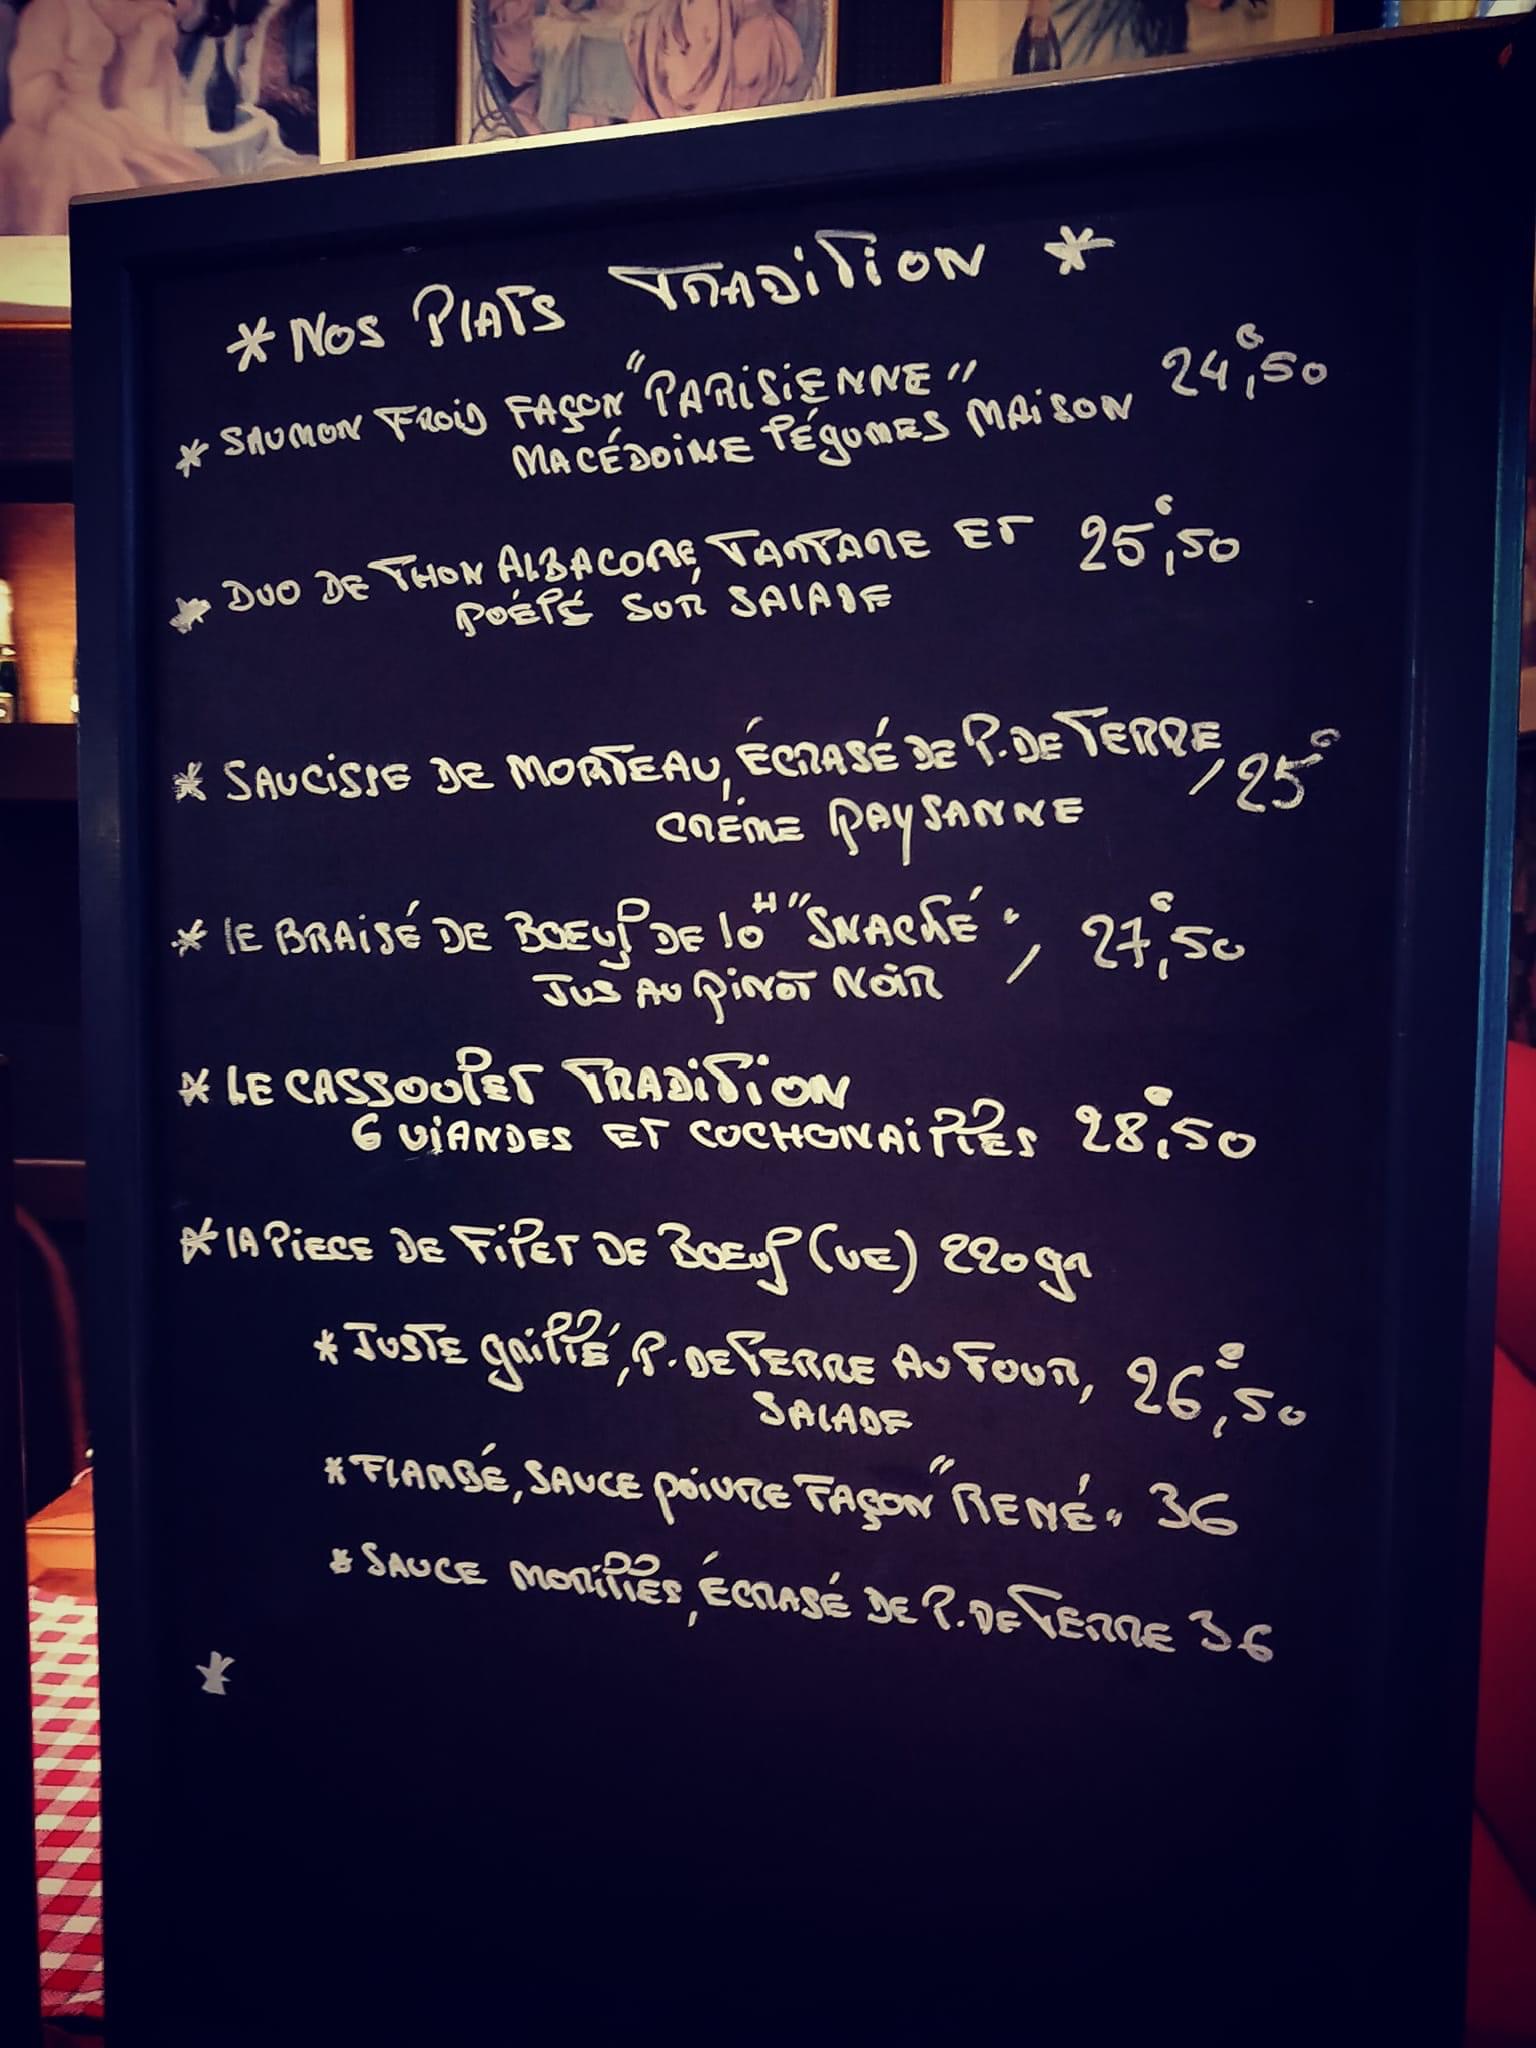 * NOS PLATS TRADITION *
* SAUMON FROID FAÇON "PARISIENNE" 24€,50
MACÉDOINE LÉGUMES MAISON
* DUO DE THON ALBACORE, TARTARE ET 25€,50
POÉLÉ SUR SALADE
* SAUCISSE DE MORTEAU, ÉCRASÉ DE P. DE TERRE, 25€
CRÉME PAYSANNE
* LE BRAISÉ DE BOEUF DE 10H "SNACKÉ", 27€,50
JUS AU PINOT NOIR
* LE CASSOULET TRADITION
6 VIANDES ET COCHONAILLES 28€,50
* LA PIECE DE FILET DE BOEUF (UE) 220gr
* JUSTE GRILLÉ, P. DE TERRE AU FOUR, 26€,50
SALADE
* FLAMBÉ, SAUCE POIVRE FAÇON "RENÉ" 36
* SAUCE MORILLES, ÉCRASÉ DE P. DE TERRE 36
*